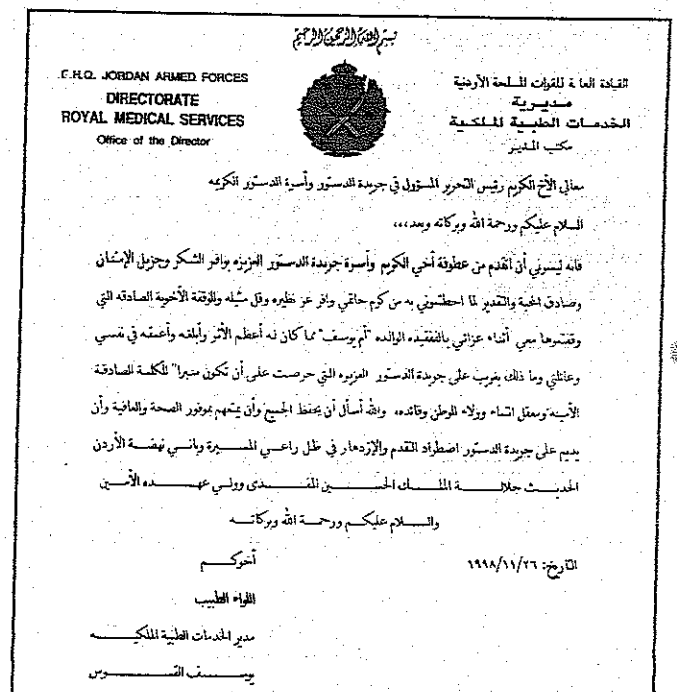 بسم الله الرحمن الرحيم
G.H.Q. JORDAN ARMED FORCES
DIRECTORATE
ROYAL MEDICAL SERVICES
Office of the Director
القيادة العامة للقوات المسلحة الأردنية
مديرية
الخدمات الطبية الملكية
مكتب المدير
معالي الأخ الكريم رئيس التحرير المسؤول في جريدة الدستور وأسرة الدستور الكريمه
السلام عليكم ورحمة الله وبركاته وبعد،،،
فانه ليسرني أن أتقدم من عطوفة أخي الكريم وأسرة جريدة الدستور العزيزه بوافر الشكر وجزيل الإمتنان
وصادق المحبة والتقدير لما احطتموني به من كرم حاتمي وافر عز نظيره وقل مثيله والوقفة الأخوية الصادقه التي
وقفتموها معي أثناء عزائي بالفقيده الوالده "أم يوسف" مما كان له أعظم الأثر وأبلغه وأعمقه في نفسي
وعائلتي وما ذلك بغريب على جريدة الدستور العزيزه التي حرصت على أن تكون منبرا" للكلمة الصادقة
الأمينه ومعقل انتماء وولاء للوطن وقائده، والله أسأل أن يحفظ الجميع وأن يمتعهم بموفور الصحة والعافية وأن
يديم على جريدة الدستور اضطراد التقدم والإزدهار في ظل راعي المسيرة وباني نهضة الأردن
الحديث جلالة الملك الحسين المفدى وولي عهده الأمين
والسلام عليكم ورحمة الله وبركاته
التاريخ: ١٩٩٨/١١/٢٦
أخوكم
اللواء الطبيب
مدير الخدمات الطبية الملكيه
يوسف القسوس